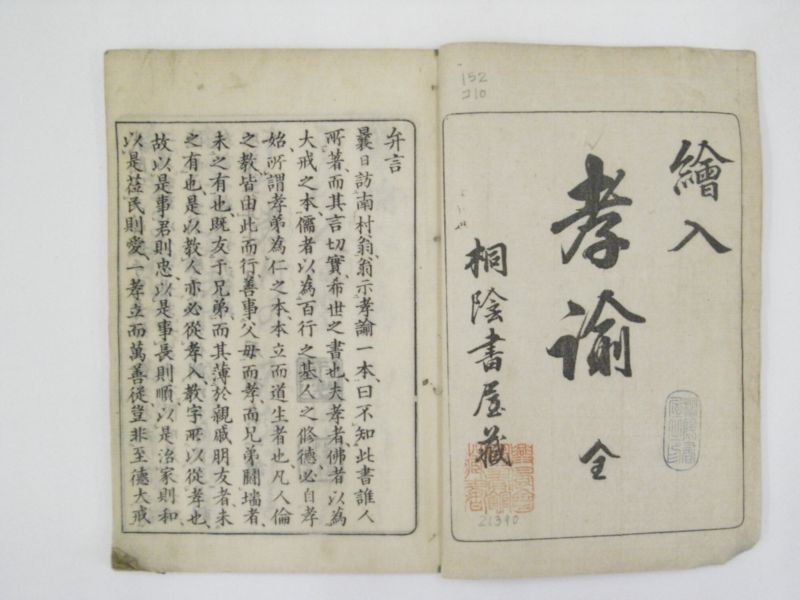 152
コ10
繪入
孝諭
全
桐陰書屋藏
21390
弁言
曩日訪南村翁、翁示孝諭一本、曰不知此書誰人
所著、而其言切實希世之書也、夫孝者、佛者以為
大戒之本、儒者以為百行之基、人之脩德必自孝
始、所謂孝弟為仁之本、本立而道生者也、凡人倫
之教皆由此而行、善事父母而孝、而兄弟鬩墻者、
未之有也、既友于兄弟、而其薄於親戚朋友者、未
之有也、是以教人亦必從孝入、教字所以從孝也、
故以是事君則忠、以是事長則順、以是治家則和
以是莅民則愛、一孝立而萬善從、豈非至德大戒